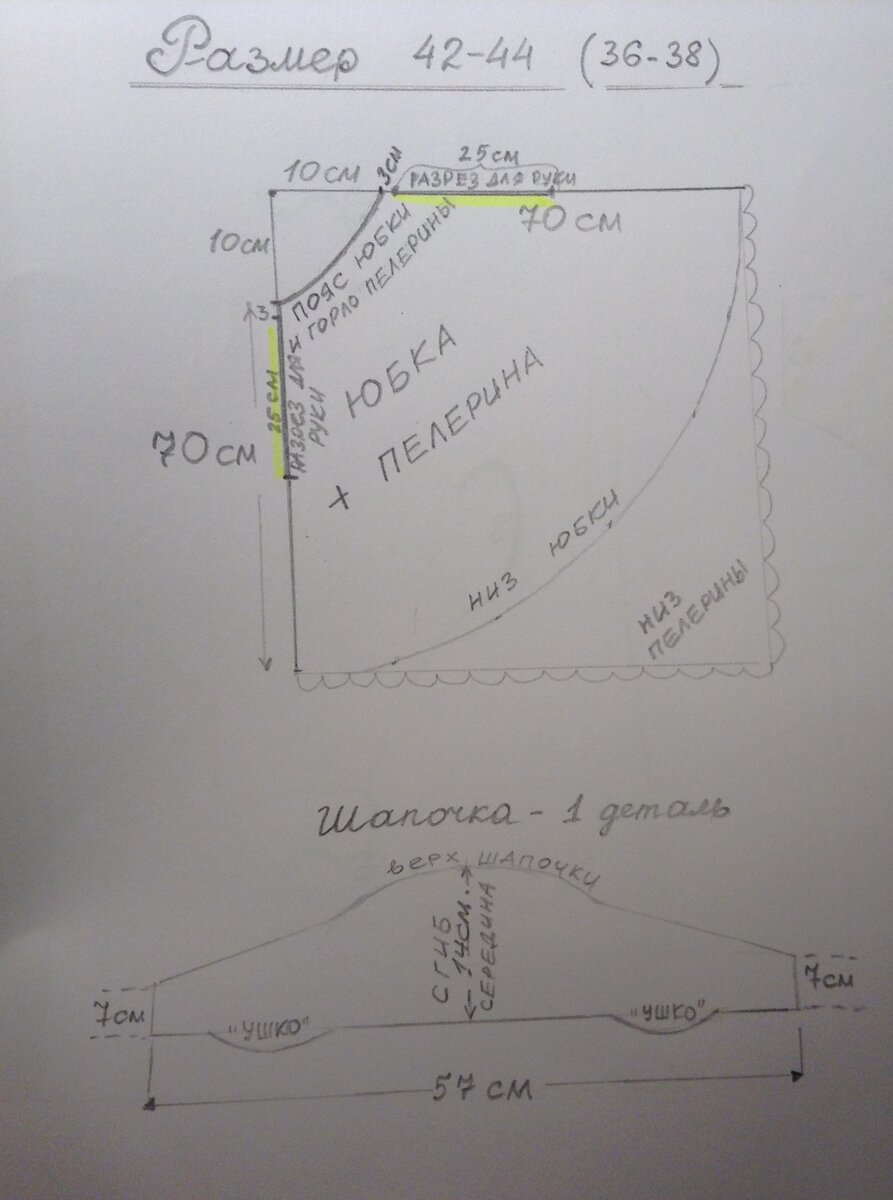 Размер 42-44 (36-38)
25см
10см 3см РАЗРЕЗ ДЛЯ РУКИ
70см
10см
ПОЯС ЮБКИ
ГОРЛО ПЕЛЕРИНЫ
3
25см
РАЗРЕЗ ДЛЯ
РУКИ
70см
ЮБКА
+ ПЕЛЕРИНА
НИЗ ЮБКИ
НИЗ
ПЕЛЕРИНЫ
Шапочка - 1 деталь
ВЕРХ ШАПОЧКИ
СГИБ
14см.
СЕРЕДИНА
7см
7см
"УШКО"
"УШКО"
57 см